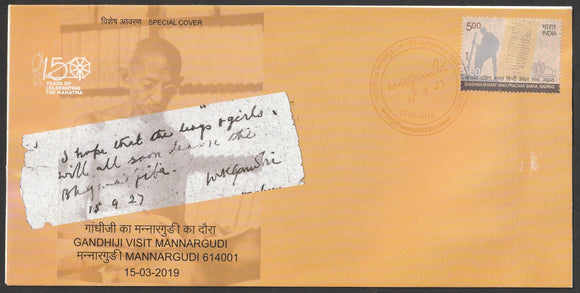 विशेष आवरण SPECIAL COVER
150
YEARS OF
CELEBRATING
THE MAHATMA
5.00
भारत
INDIA
DAKSHINA BHARAT HINDI PRACHAR SABHA, MADRAS
MKGandhi
15 9 27
15-03-2019
I hope that the boys & girls
will all soon learn the
Bhagavad Gita.
MKGandhi
15 9 27
गांधीजी का मन्नारगुडी का दौरा
GANDHIJI VISIT MANNARGUDI
मन्नारगुडी MANNARGUDI 614001
15-03-2019